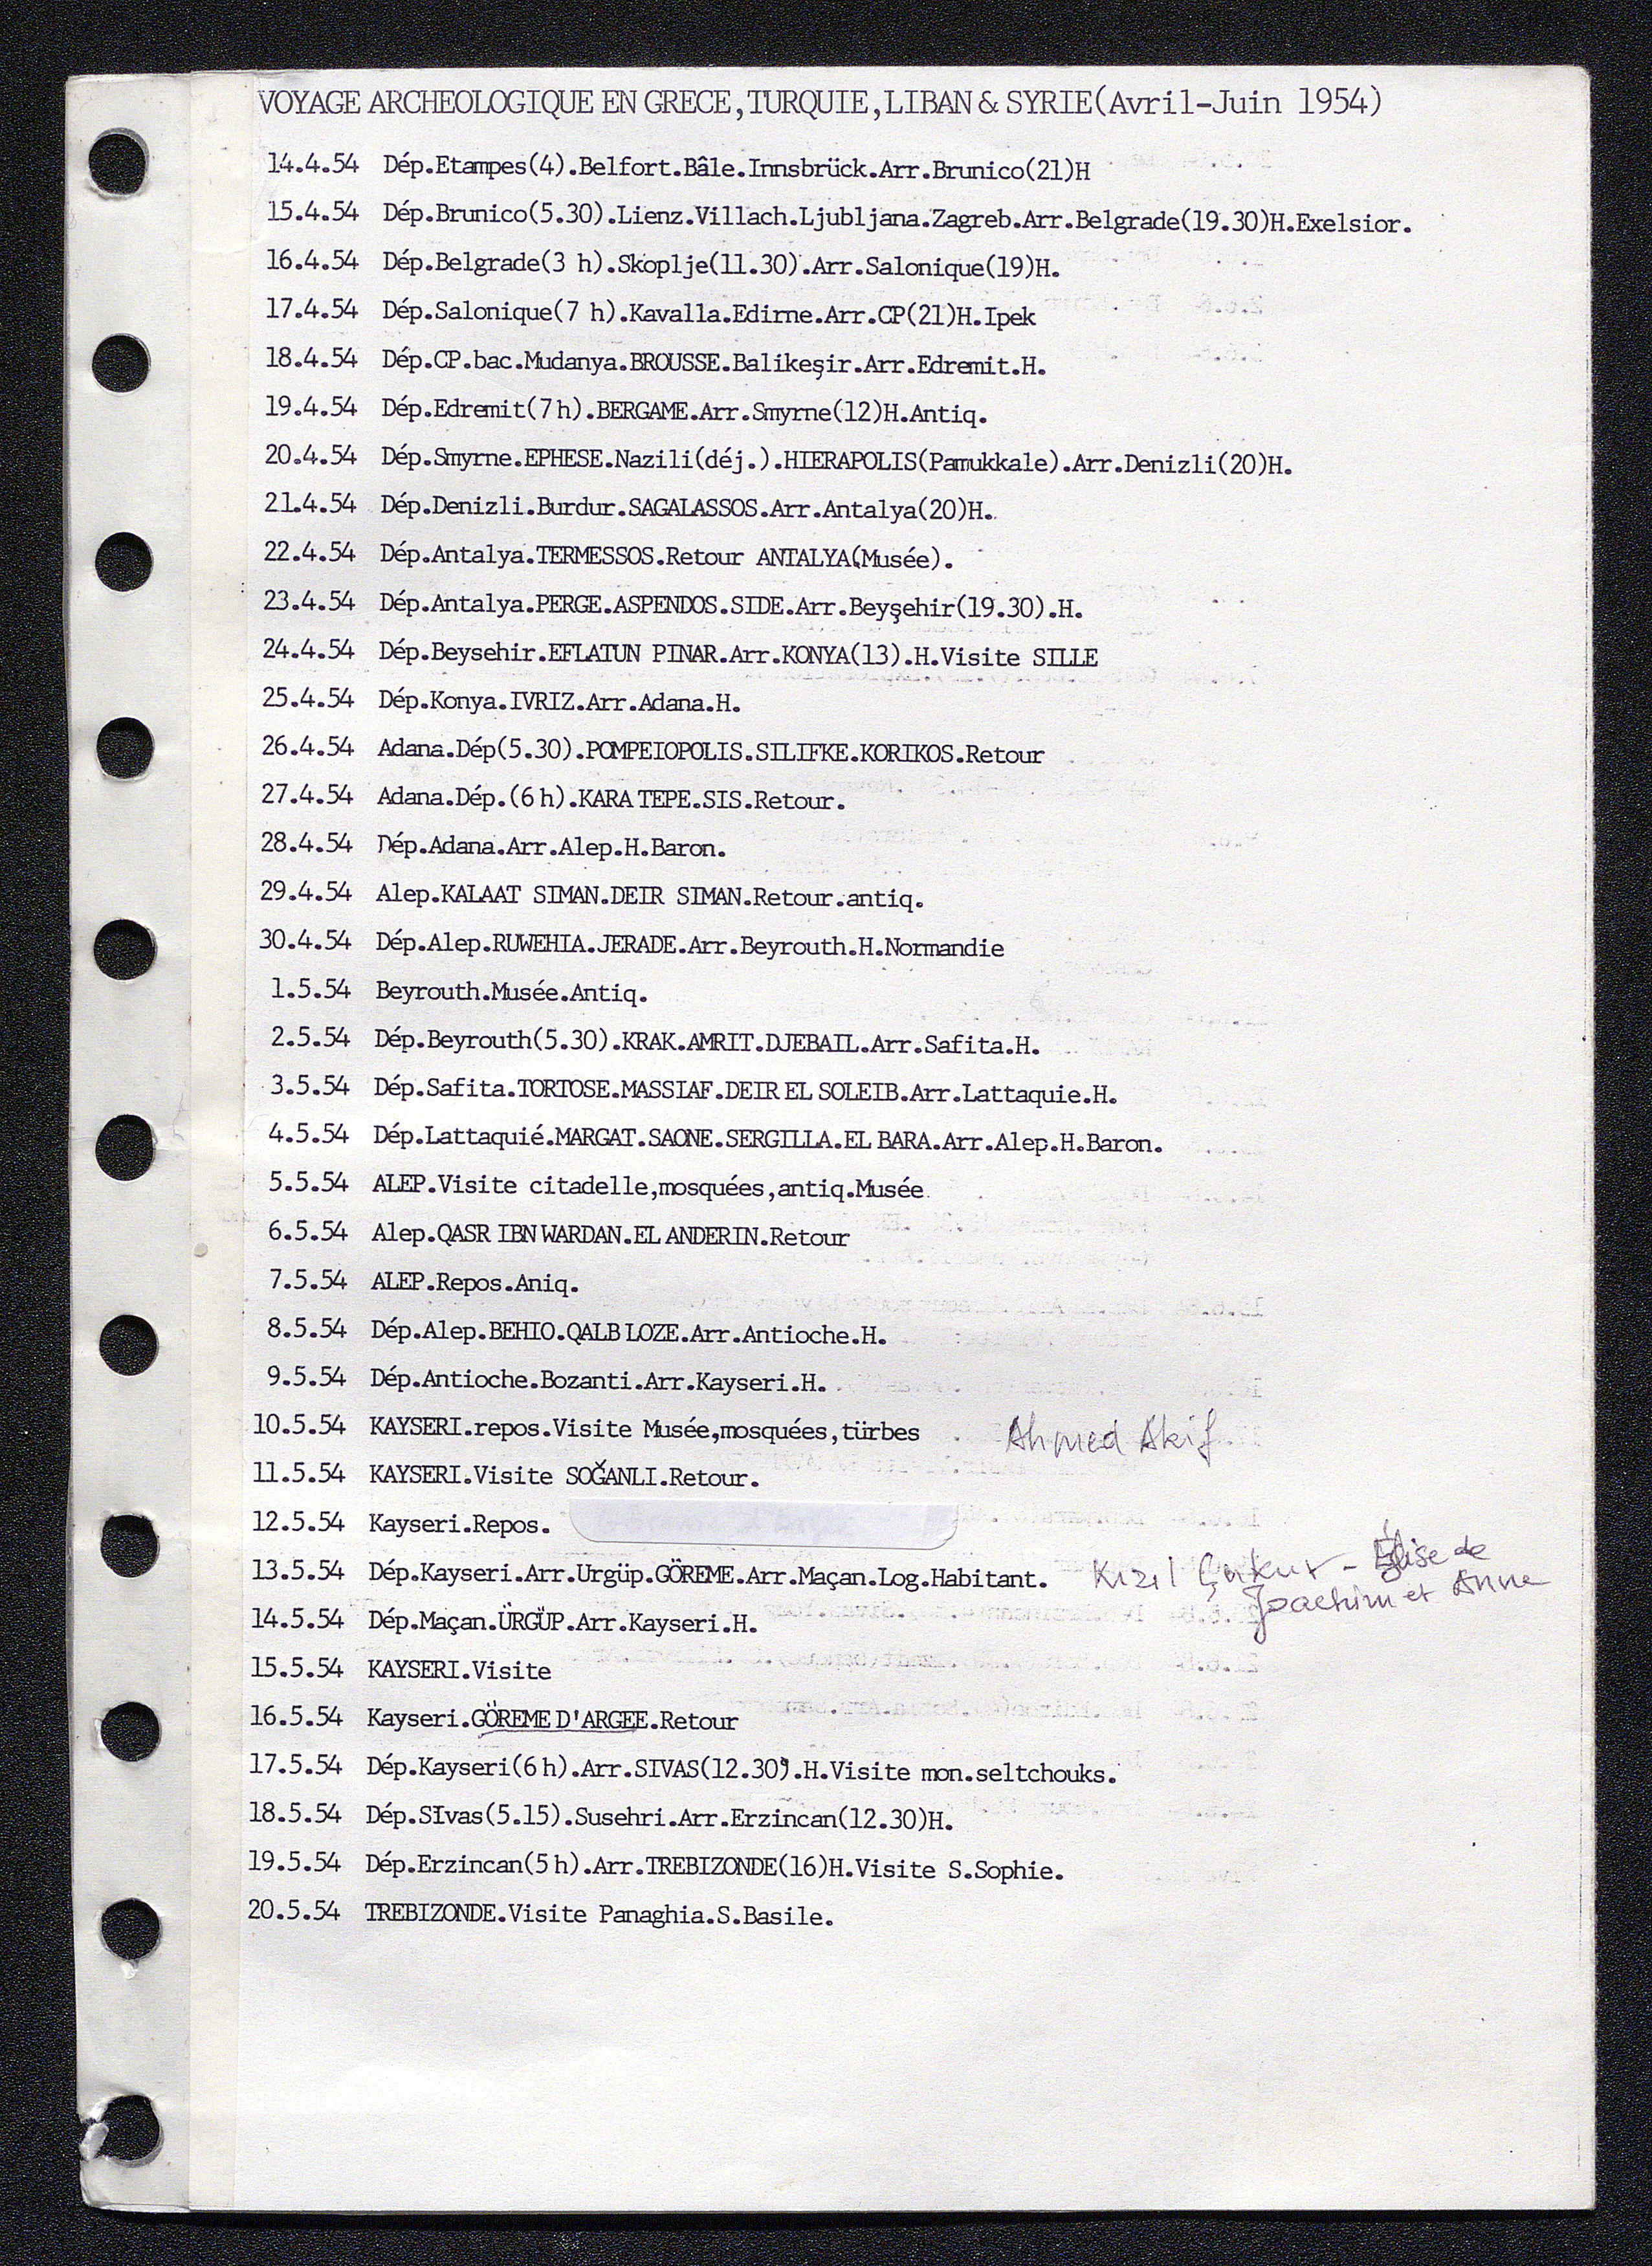 VOYAGE ARCHEOLOGIQUE EN GRECE,TURQUIE,LIBAN & SYRIE(Avril-Juin 1954)
14.4.54 Dép.Etampes(4).Belfort.Bâle.Innsbrück.Arr.Brunico(21)H
15.4.54 Dép.Brunico(5.30).Lienz.Villach.Ljubljana.Zagreb.Arr.Belgrade(19.30)H.Exelsior.
16.4.54 Dép.Belgrade(3 h).Skoplje(11.30).Arr.Salonique(19)H.
17.4.54 Dép.Salonique(7 h).Kavalla.Edirne.Arr.CP(21)H.Ipek
18.4.54 Dép.CP.bac.Mudanya.BROUSSE.Balikeşir.Arr.Edremit.H.
19.4.54 Dép.Edremit(7h).BERGAME.Arr.Smyrne(12)H.Antiq.
20.4.54 Dép.Smyrne.EPHESE.Nazili(déj.).HIERAPOLIS(Pamukkale).Arr.Denizli(20)H.
21.4.54 Dép.Denizli.Burdur.SAGALASSOS.Arr.Antalya(20)H.
22.4.54 Dép.Antalya.TERMESSOS.Retour ANTALYA(Musée).
23.4.54 Dép.Antalya.PERGE.ASPENDOS.SIDE.Arr.Beyşehir(19.30).H.
24.4.54 Dép.Beysehir.EFLATUN PINAR.Arr.KONYA(13).H.Visite SILLE
25.4.54 Dép.Konya.IVRIZ.Arr.Adana.H.
26.4.54 Adana.Dép(5.30).POMPEIOPOLIS.SILIFKE.KORIKOS.Retour
27.4.54 Adana.Dép.(6 h).KARA TEPE.SIS.Retour.
28.4.54 Dép.Adana.Arr.Alep.H.Baron.
29.4.54 Alep.KALAAT SIMAN.DEIR SIMAN.Retour.antiq.
30.4.54 Dép.Alep.RUWEHIA.JERADE.Arr.Beyrouth.H.Normandie
1.5.54 Beyrouth.Musée.Antiq.
2.5.54 Dép.Beyrouth(5.30).KRAK.AMRIT.DJEBAIL.Arr.Safita.H.
3.5.54 Dép.Safita.TORTOSE.MASSIAF.DEIR EL SOLEIB.Arr.Lattaquie.H.
4.5.54 Dép.Lattaquié.MARGAT.SAONE.SERGILLA.EL BARA.Arr.Alep.H.Baron.
5.5.54 ALEP.Visite citadelle,mosquées,antiq.Musée
6.5.54 Alep.QASR IBN WARDAN.EL ANDERIN.Retour
7.5.54 ALEP.Repos.Aniq.
8.5.54 Dép.Alep.BEHIO.QALB LOZE.Arr.Antioche.H.
9.5.54 Dép.Antioche.Bozanti.Arr.Kayseri.H.
10.5.54 KAYSERI.repos.Visite Musée,mosquées,türbes Ahmed Akif
11.5.54 KAYSERI.Visite SOĞANLI.Retour.
12.5.54 Kayseri.Repos.
13.5.54 Dép.Kayseri.Arr.Urgüp.GÖREME.Arr.Maçan.Log.Habitant. Kızıl Çukur - Église de
Joachim et Anne
14.5.54 Dép.Maçan.ÜRGÜP.Arr.Kayseri.H.
15.5.54 KAYSERI.Visite
16.5.54 Kayseri.GÖREME D'ARGEE.Retour
17.5.54 Dép.Kayseri(6 h).Arr.SIVAS(12.30).H.Visite mon.seltchouks.
18.5.54 Dép.SIvas(5.15).Susehri.Arr.Erzincan(12.30)H.
19.5.54 Dép.Erzincan(5 h).Arr.TREBIZONDE(16)H.Visite S.Sophie.
20.5.54 TREBIZONDE.Visite Panaghia.S.Basile.